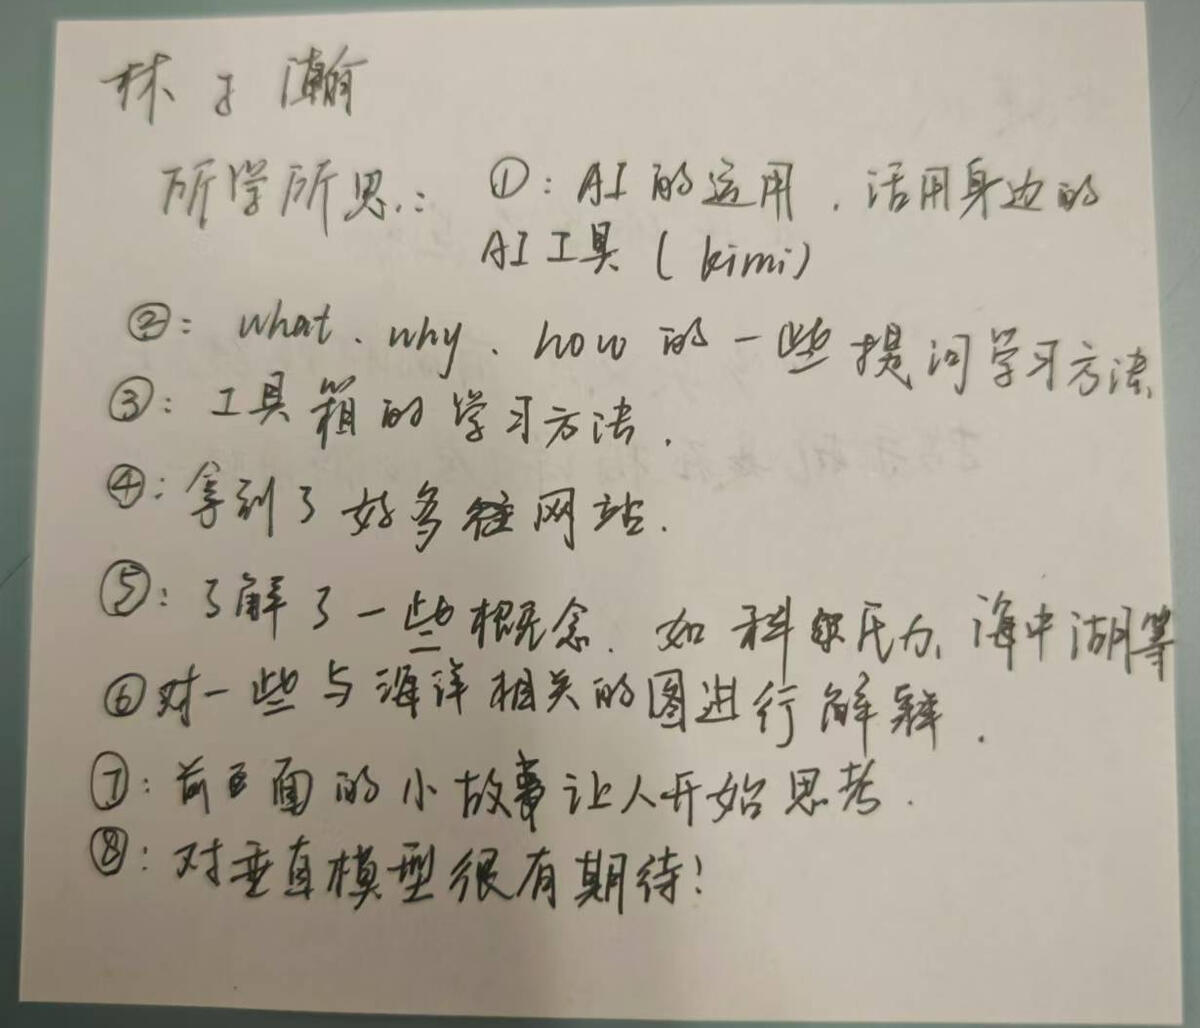 林子瀚
所学所思: ①: AI的运用,活用身边的
AI工具(kimi)
②: what、why、how的一些提问学习方法
③: 工具箱的学习方法.
④: 拿到了好多网站.
⑤: 了解了一些概念.如科氏力、海中湖等
⑥对一些与海洋相关的图进行解释.
⑦: 前面的小故事让人开始思考.
⑧: 对垂直模型很有期待!